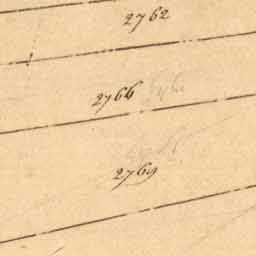 2762
2766
2769